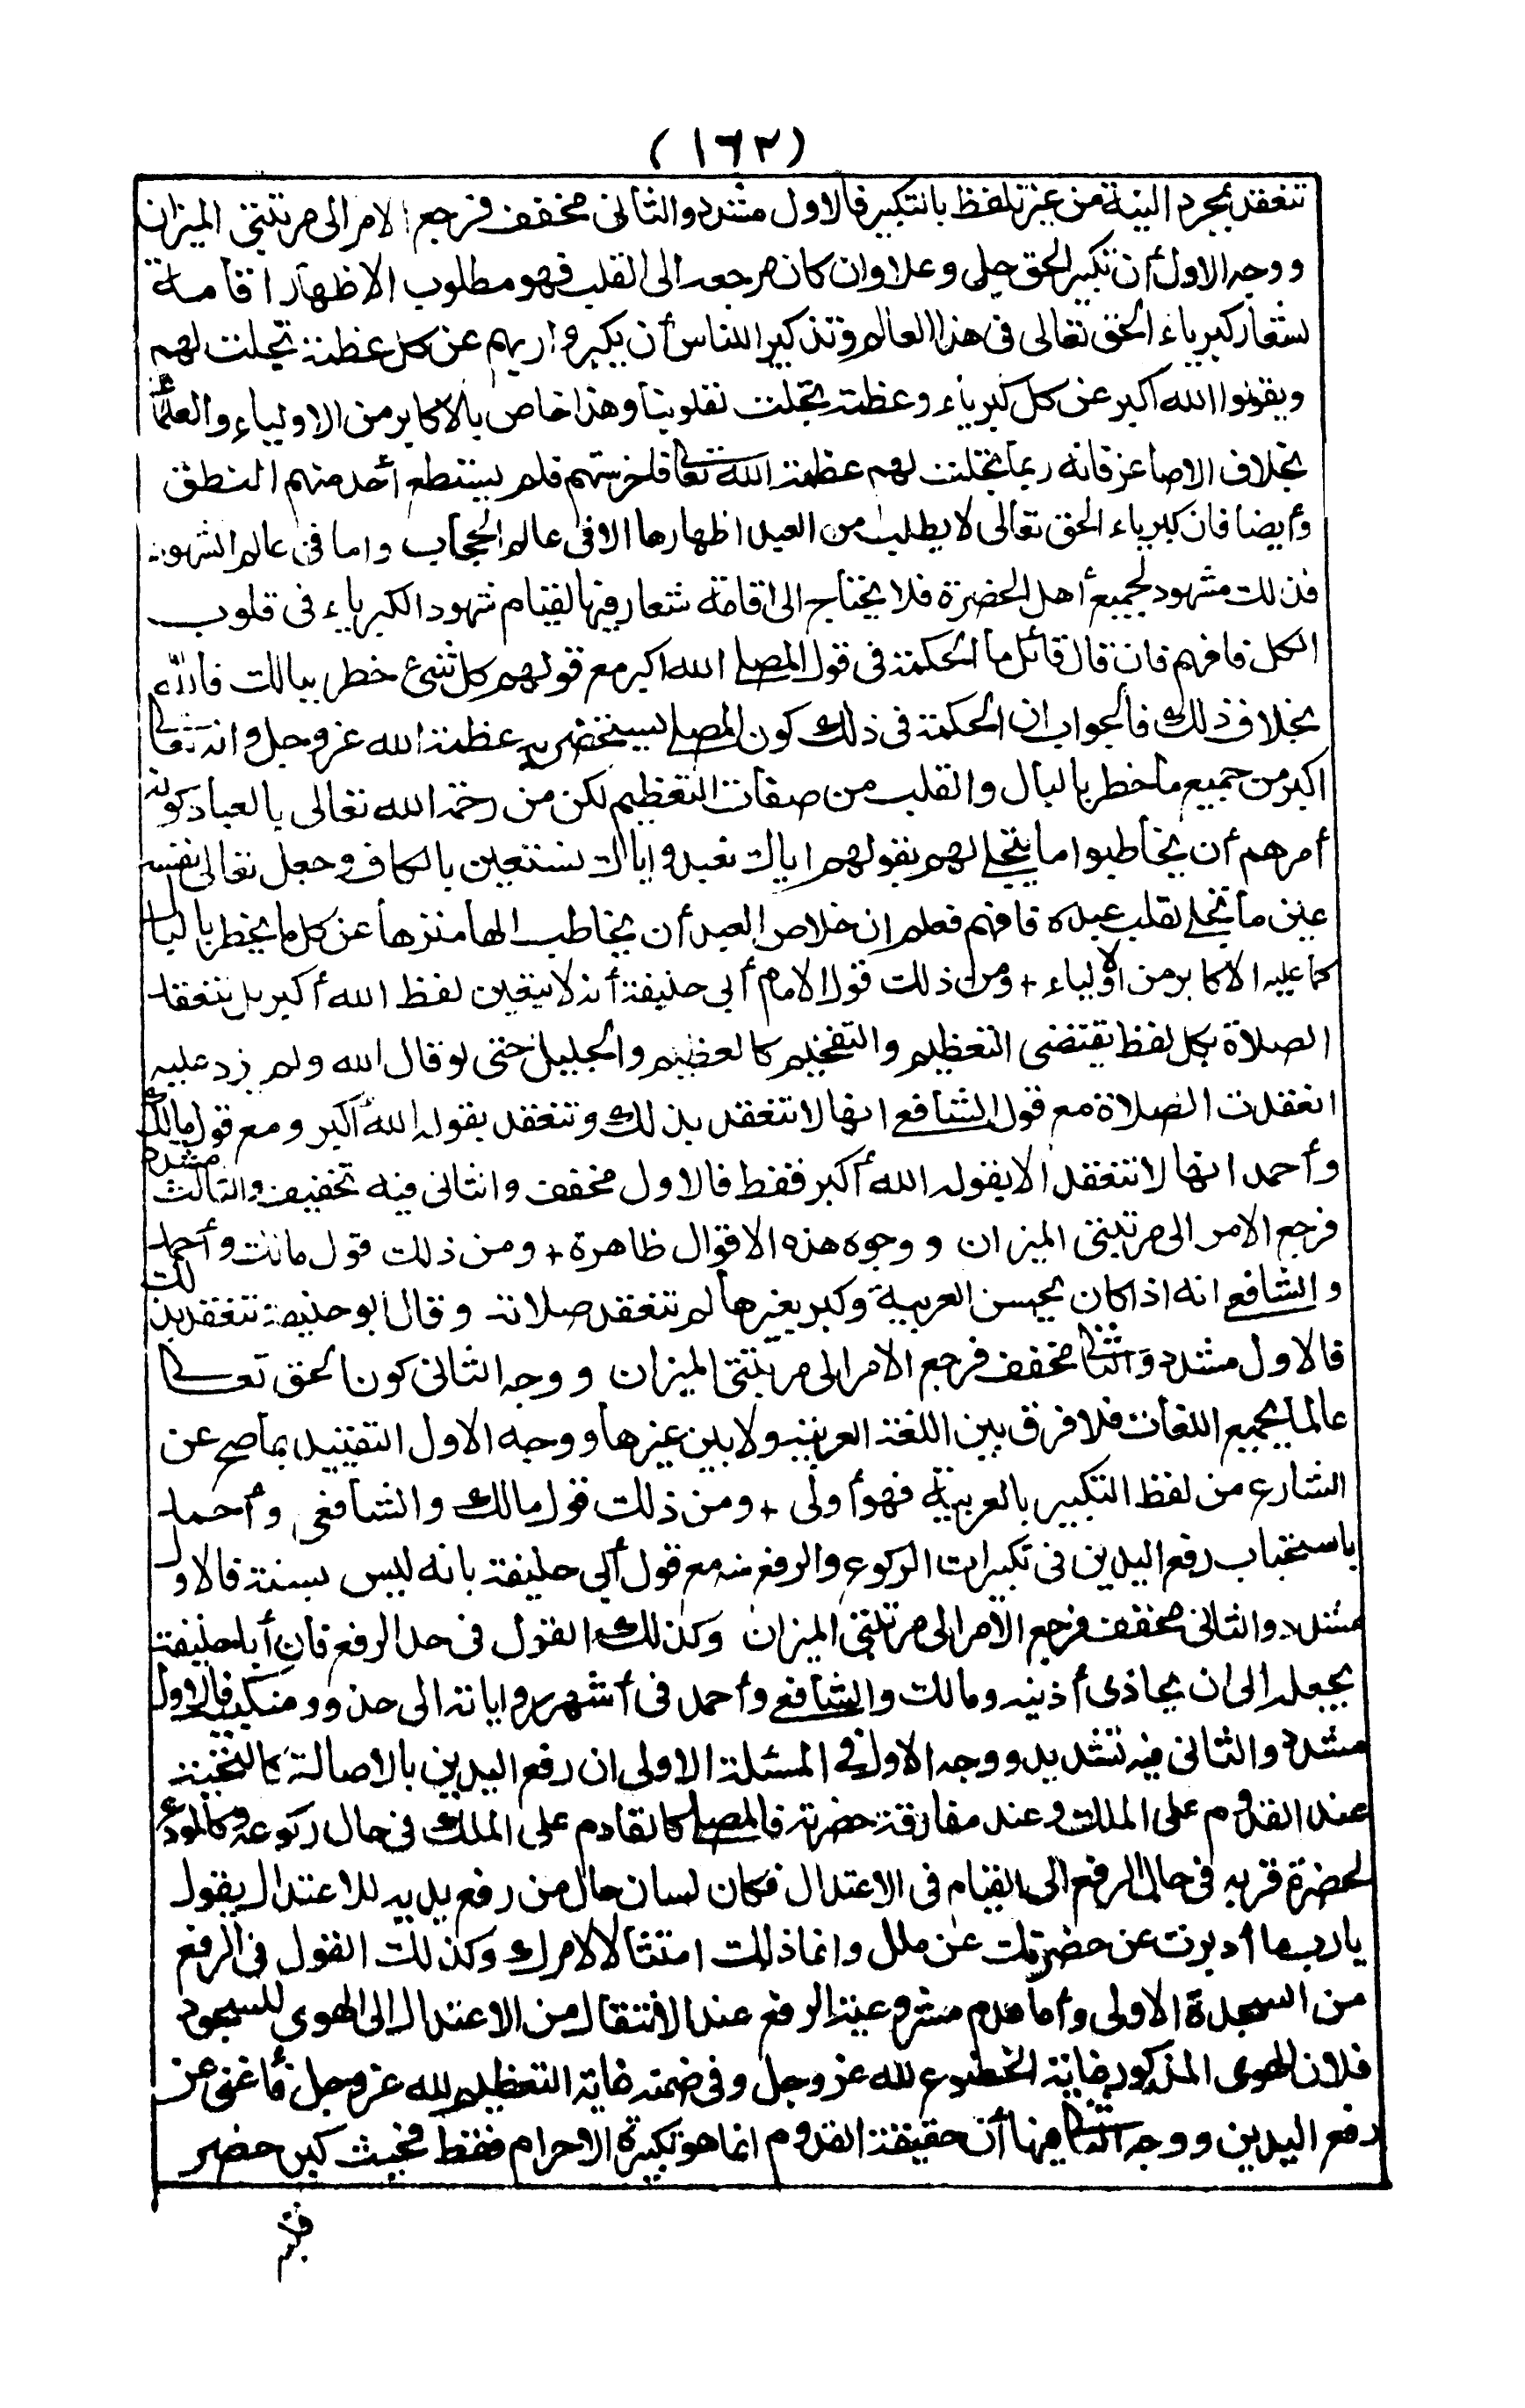 (١٦٢)
تنعقد بمجرد النية من غير تلفظ بالتكبير فالاول مشدد والثانى مخفف فرجع الامر الى مرتبتى الميزان
ووجه الاول أن تكبير الحق جل وعلا وان كان مرجعه الى القلب فهو مطلوب الاظهار اقامة
لشعار كبرياء الحق تعالى فى هذا العالم وتذكير الناس أن يكبروا ربهم عن كل عظمة تجلت لهم
ويقولوا الله أكبر عن كل كبرياء وعظمة تجلت لقلوبنا وهذا خاص بالاكابر من الاولياء والعلماء
بخلاف الاصاغر فانه ربما تجلت لهم عظمة الله تعالى فأخرستهم فلم يستطع أحد منهم النطق
وأيضا فان كبرياء الحق تعالى لا يطلب من العبد اظهارها الا فى عالم الحجاب واما فى عالم الشهود
فذلك مشهود لجميع أهل الحضرة فلا يحتاج الى اقامة شعار فيها لقيام شهود الكبرياء فى قلوب
الكل فافهم فان قال قائل ما الحكمة فى قول المصلى الله اكبر مع قولهم كل شئ خطر ببالك فالله
بخلاف ذلك فالجواب ان الحكمة فى ذلك كون المصلى يستحضر به عظمة الله عز وجل وانه تعالى
اكبر من جميع ما خطر بالبال والقلب من صفات التعظيم لكن من رحمة الله تعالى بالعباد كونه
أمرهم أن يخاطبوا ما يتجلى لهم بقولهم اياك نعبد واياك نستعين بالكاف وجعل تعالى نفسه
عين ما تجلى لقلب عبده فافهم فعلم ان خلاص العبد أن يخاطب الها منزها عن كل ما يخطر بالبال
كما عليه الاكابر من الاولياء + ومن ذلك قول الامام أبى حنيفة أنه لا يتعين لفظ الله أكبر بل تنعقد
الصلاة بكل لفظ يقتضى التعظيم والتفخيم كالعظيم والجليل حتى لو قال الله ولم يزد عليه
انعقدت الصلاة مع قول الشافعى انها لا تنعقد بذلك وتنعقد بقوله الله اكبر ومع قول مالك
وأحمد انها لا تنعقد الا بقوله الله أكبر فقط فالاول مخفف والثانى فيه تخفيف والثالث مشدد
فرجع الامر الى مرتبتى الميزان ووجوه هذه الاقوال ظاهرة + ومن ذلك قول مالك وأحمد
والشافعى انه اذا كان يحسن العربية وكبر بغيرها لم تنعقد صلاته وقال ابو حنيفة تنعقد بذلك
فالاول مشدد والثانى مخفف فرجع الامر الى مرتبتى الميزان ووجه الثانى كون الحق تعالى
عالما بجميع اللغات فلا فرق بين اللغة العربية ولا بين غيرها ووجه الاول التقييد بما صح عن
الشارع من لفظ التكبير بالعربية فهو أولى + ومن ذلك قول مالك والشافعى وأحمد
باستحباب رفع اليدين فى تكبيرات الركوع والرفع منه مع قول أبى حنيفة بانه ليس بسنة فالاول
مشدد والثانى مخفف فرجع الامر الى مرتبتى الميزان وكذلك القول فى حد الرفع فان أبا حنيفة
يجعله الى ان يحاذى أذنيه ومالك والشافعى وأحمد فى أشهر رواياته الى حذو ومنكبيه فالاول
مشدد والثانى فيه تشديد ووجه الاول فى المسئلة الاولى ان رفع اليدين بالاصالة كالتحية
عند القدوم على الملك وعند مفارقة حضرته فالمصلى كالقادم على الملك فى حال ركوعه وكالمودع
لحضرة قربه فى حال الرفع الى القيام فى الاعتدال فكان لسان حال من رفع يديه للاعتدال يقول
يارب ما أدبرت عن حضرتك عن ملل وانما ذلك امتثالا لامرك وكذلك القول فى الرفع
من السجدة الاولى وأما عدم مشروعية الرفع عند الانتقال من الاعتدال الى الهوى للسجود
فلان الهوى المذكور غاية الخضوع لله عز وجل وفى ضمنه غاية التعظيم لله عز وجل فأغنى عن
رفع اليدين ووجه الثانى فيها أن حقيقة القدوم انما هو تكبيرة الاحرام فقط فحيث كبر حضر